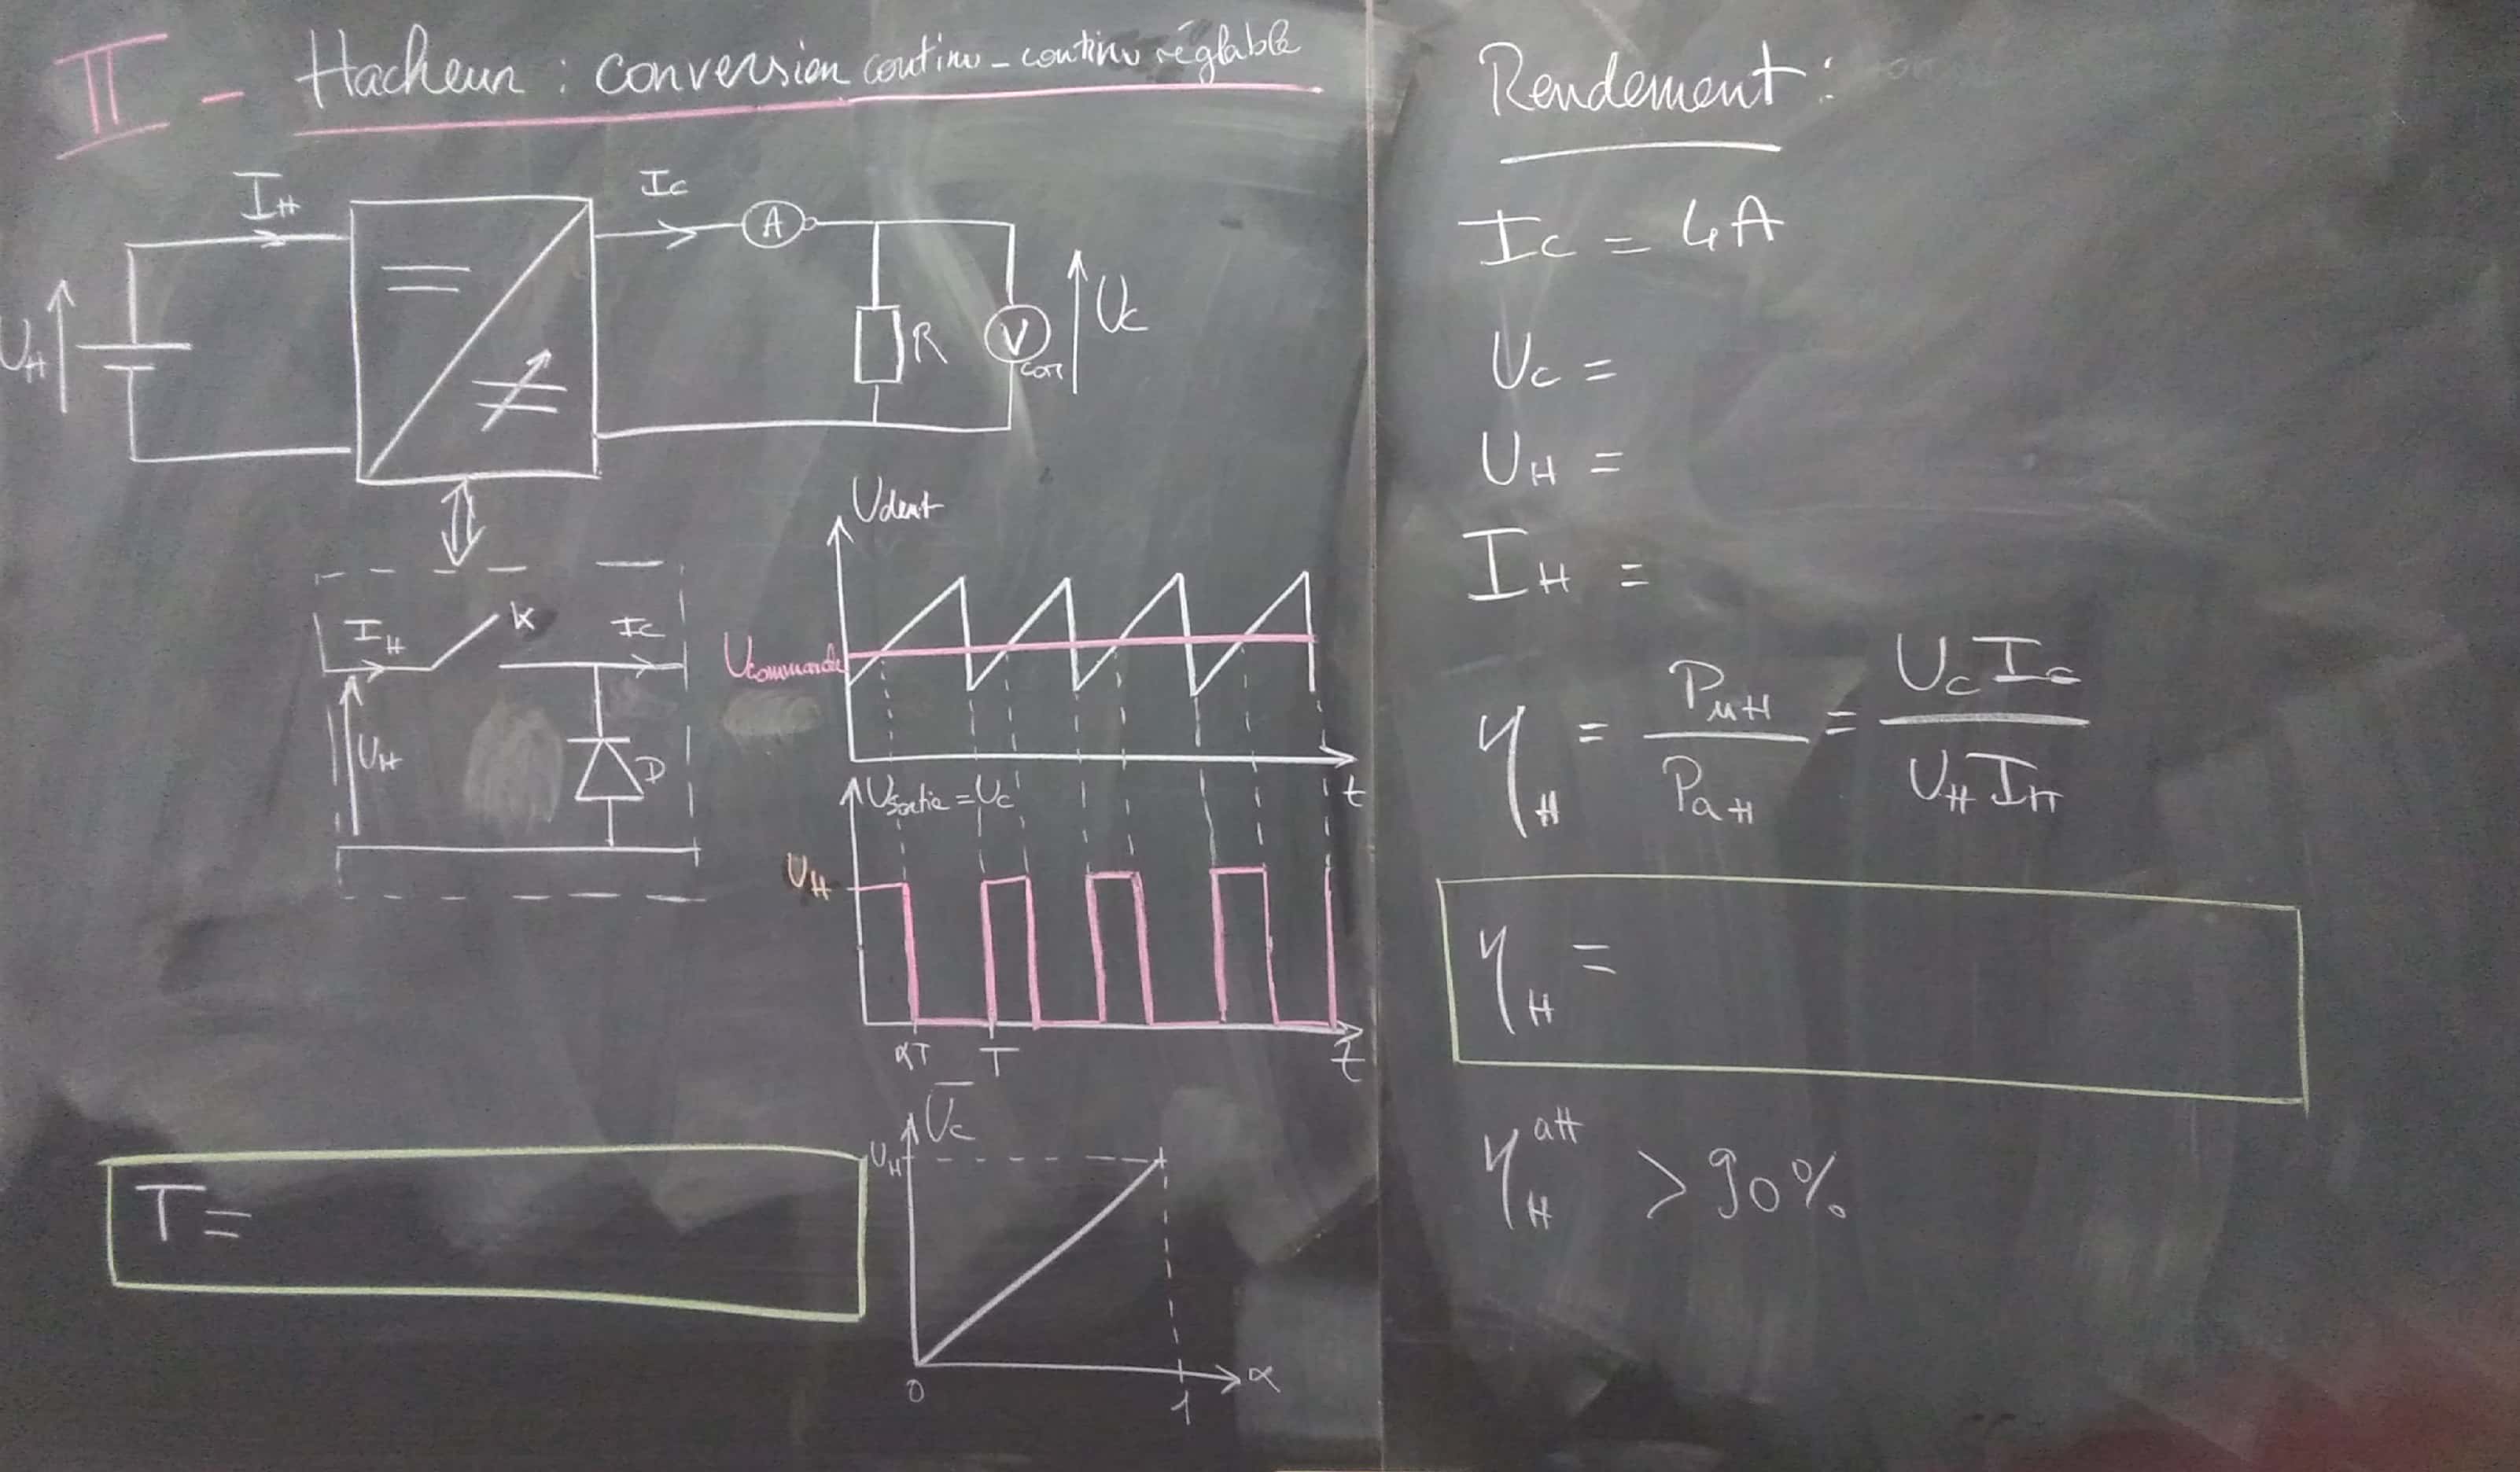 II - Hacheur : conversion continu - continu réglable
I_H
I_C
A
U_H
R
V
U_C
I_H
K
I_C
U_H
D
U_dent
U_commande
t
U_sortie = U_C
U_H
αT
T
t
T =
U_C
U_H
0
1
α
Rendement :
I_C = 4A
U_C =
U_H =
I_H =
η_H = P_uH / P_aH = U_C I_C / U_H I_H
η_H =
η_H^att > 90%